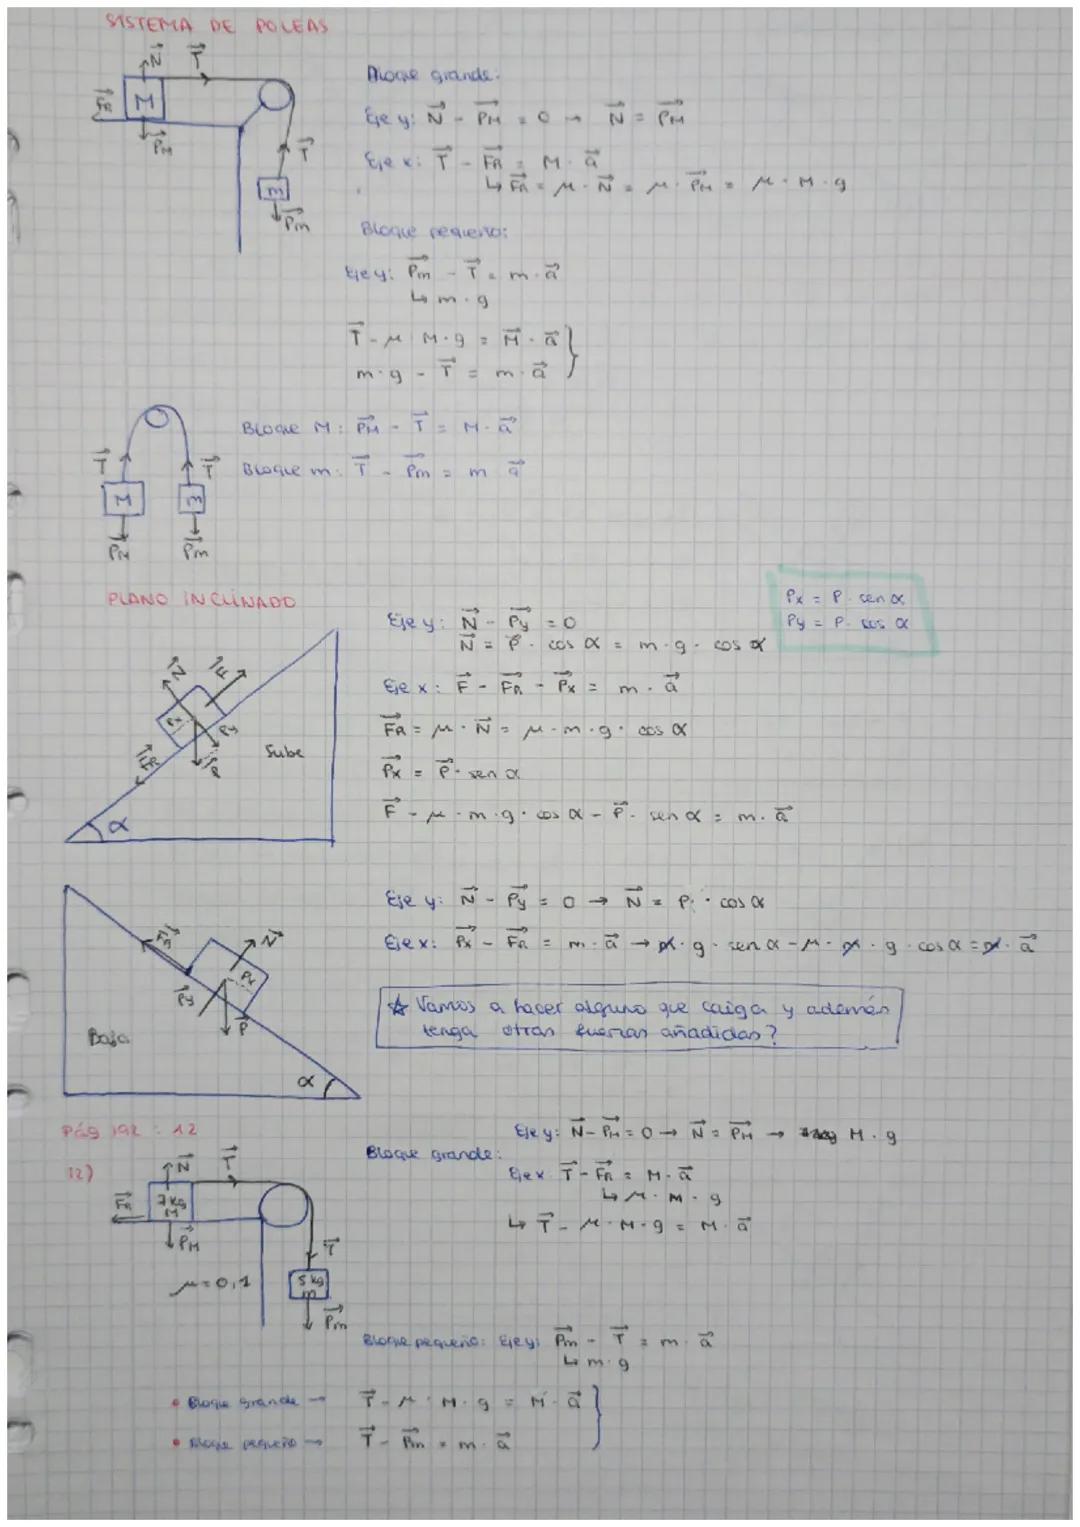 SISTEMA DE POLEAS
N T
FR M
PM
T
m
Pm
Bloque grande:
Eje y: N - PM = 0 → N = PM
Eje x: T - FR = M · a
↳ FR = μ · N = μ · PM = μ · M · g
Bloque pequeño:
Eje y: Pm - T = m · a
↳ m · g
T - μ M · g = M · a
m · g - T = m · a
Bloque M: PM - T = M · a
Bloque m: T - Pm = m a
T T
M m
PM Pm
PLANO INCLINADO
Px = P · sen α
Py = P · cos α
Eje y: N - Py = 0
N = P · cos α = m · g · cos α
Eje x: F - FR - Px = m · a
FR = μ · N = μ · m · g · cos α
Px = P · sen α
F - μ · m · g · cos α - P · sen α = m · a
N F
Px Py
FR P
Sube
α
Eje y: N - Py = 0 → N = P · cos α
Eje x: Px - FR = m · a → m · g · sen α - μ · m · g · cos α = m · a
☆ Vamos a hacer alguno que caiga y además
tenga otras fuerzas añadidas?
FR N
Px
P
Baja
α
Pág 192 : 12
12)
N T
FR 7 kg
M
PM
μ = 0,1
T
5 kg
m
Pm
Bloque grande:
Eje y: N - PM = 0 → N = PM → M · g
Eje x: T - FR = M · a
↳ μ · M · g
↳ T - μ · M · g = M · a
Bloque pequeño: Eje y: Pm - T = m · a
↳ m · g
• Bloque grande → T - μ · M · g = M · a
• Bloque pequeño → T - Pm = m · a